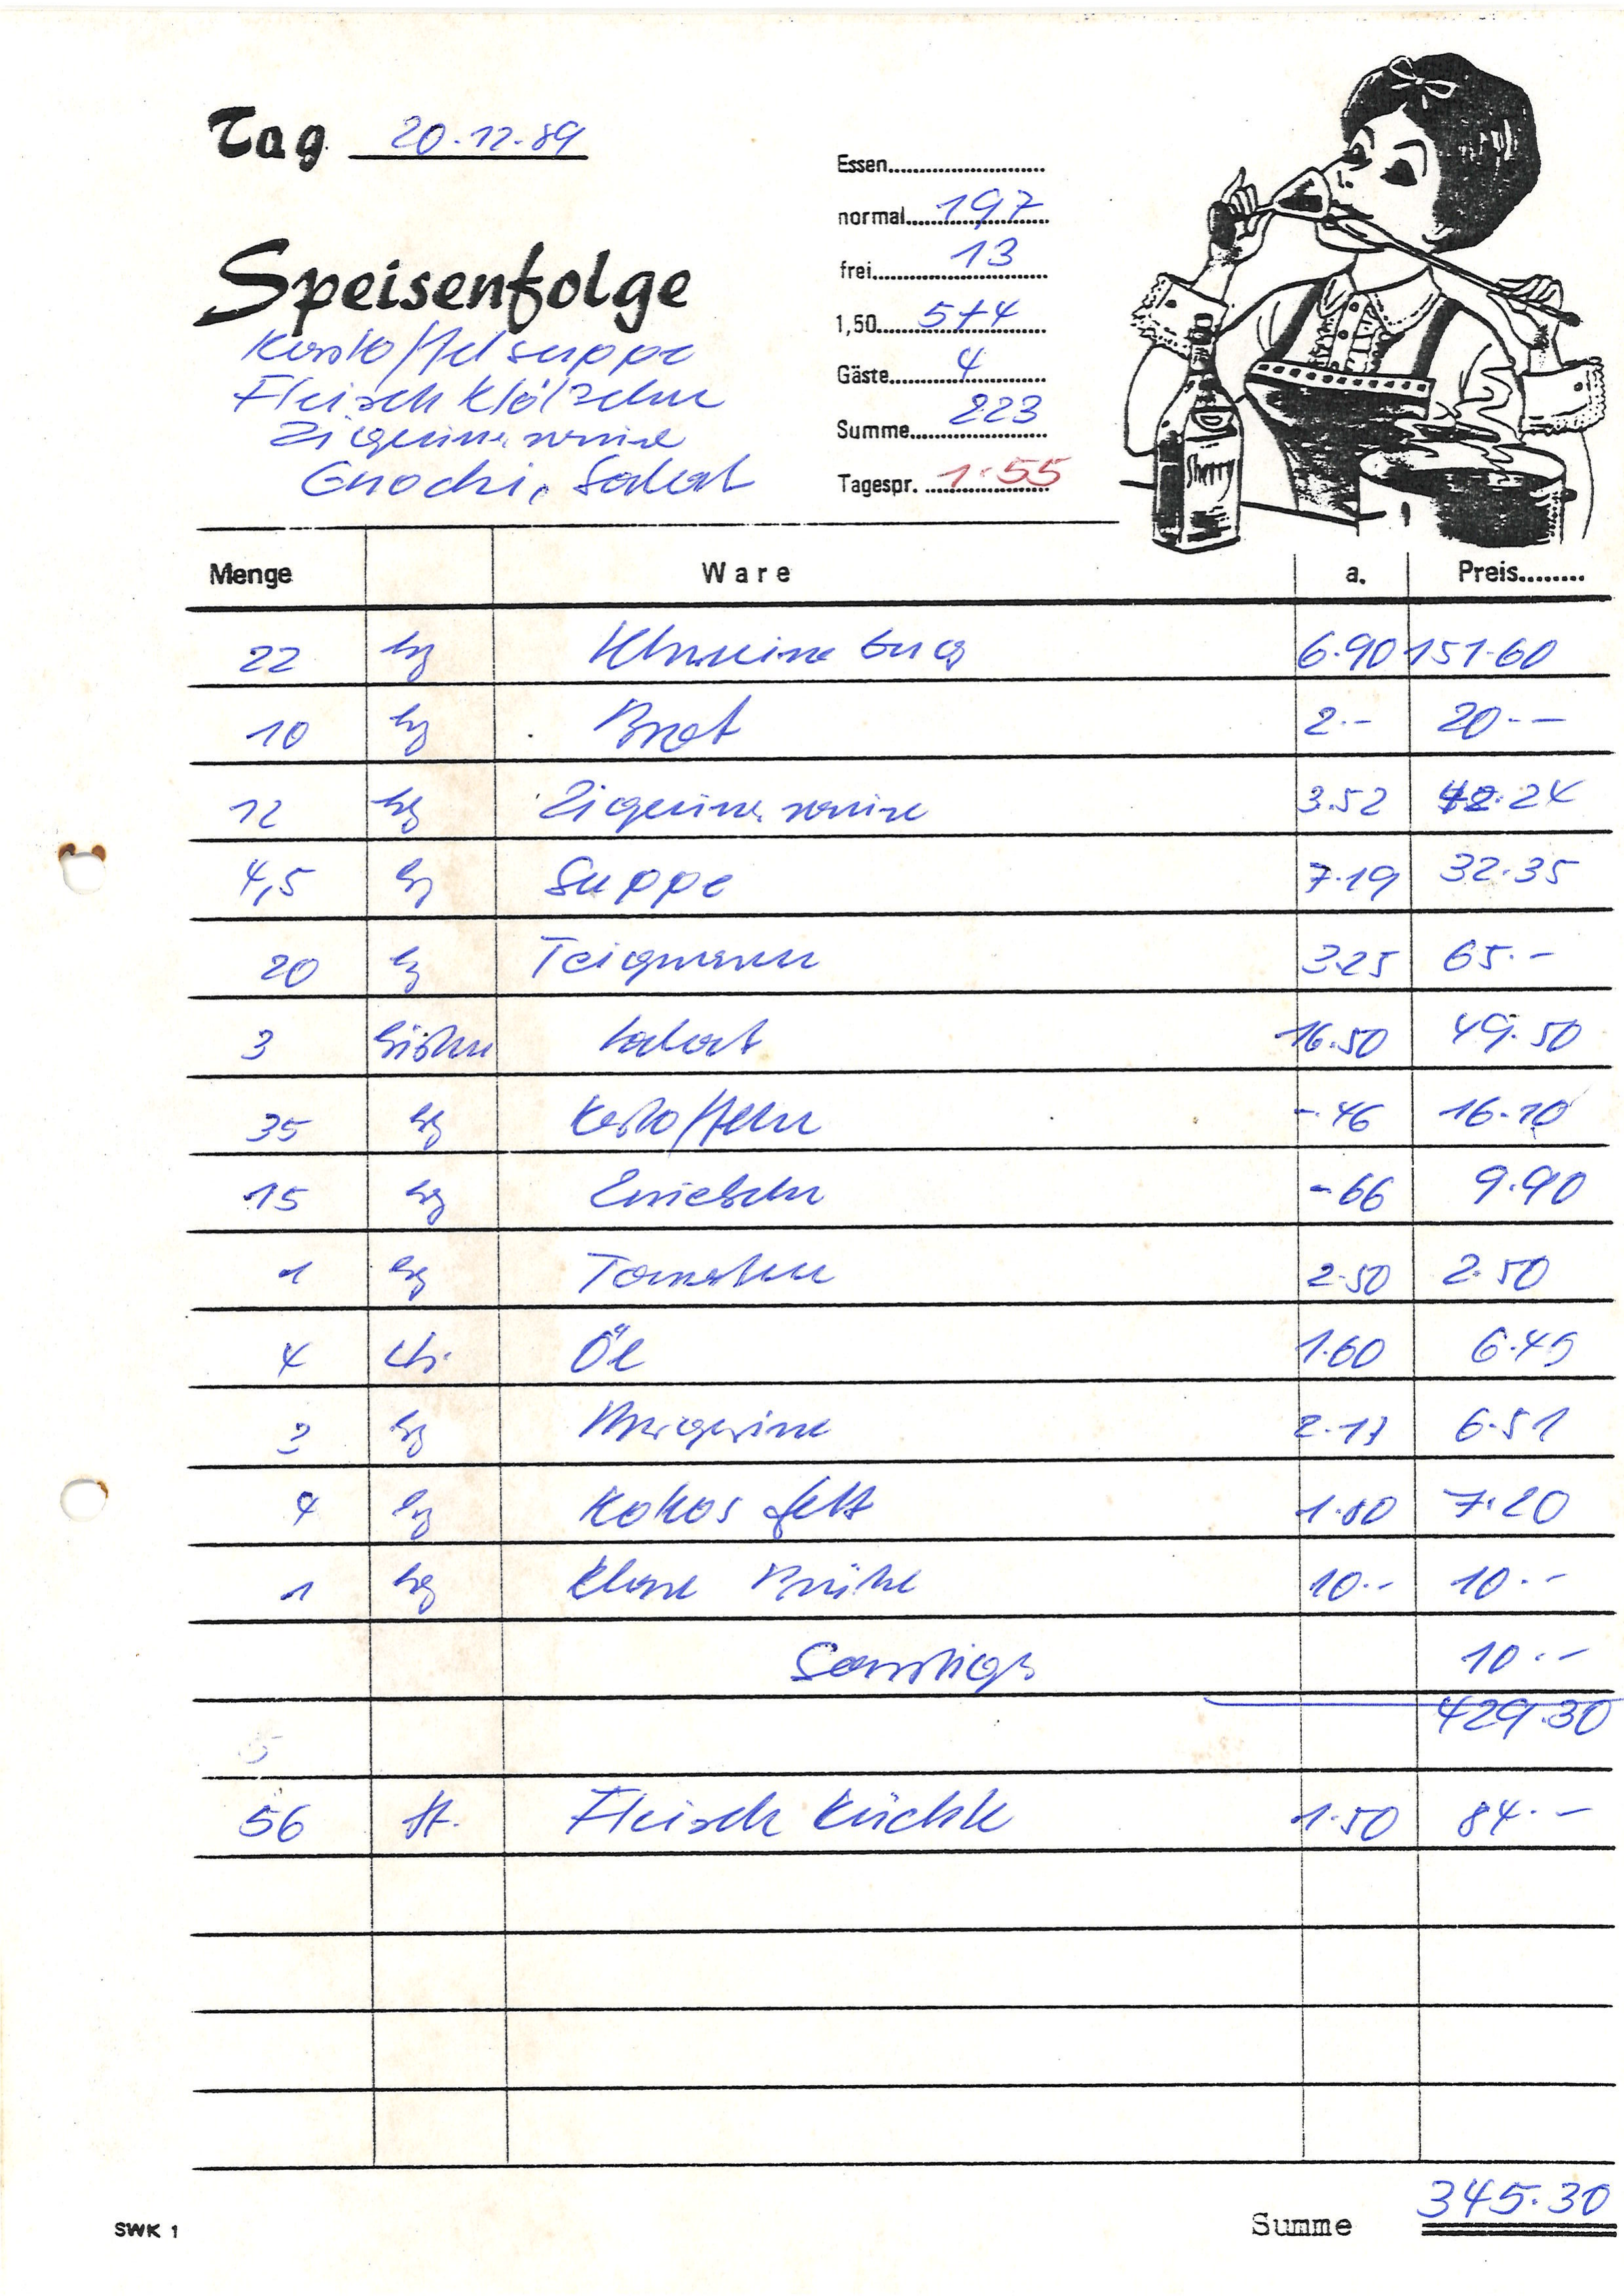 Tag 20.12.89
Essen
normal 197
frei 13
1,50 5+4
Gäste 4
Summe 223
Tagespr. 1.55
Speisenfolge
Kartoffelsuppe
Fleischklölzchen
Zigeunersauce
Gnochi, Salat
Sherry
Menge Ware a. Preis
22 kg Schweinebug 6.90 151.60
10 kg Brot 2.- 20.-
12 kg Zigeunersauce 3.52 42.24
4,5 kg Suppe 7.19 32.35
20 kg Teigwaren 3.25 65.-
3 Kisten Salat 16.50 49.50
35 kg Kartoffeln -.46 16.10
15 kg Zwiebeln -.66 9.90
1 kg Tomaten 2.50 2.50
4 Ltr. Öl 1.60 6.40
3 kg Margarine 2.17 6.51
4 kg Kokosfett 1.80 7.20
1 kg Klare Brühe 10.- 10.-
Sonstiges 10.-
429.30
56 St. Fleischküchle 1.50 84.-
Summe 345.30
SWK 1